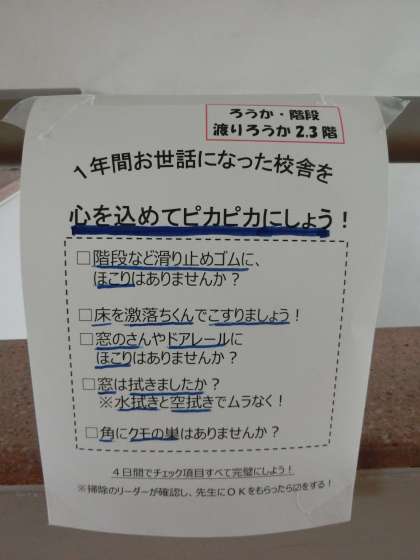 ろうか・階段
渡りろうか2.3階
1年間お世話になった校舎を
心を込めてピカピカにしょう！
□階段など滑り止めゴムに、
ほこりはありませんか？
□床を激落ちくんでこすりましょう！
□窓のさんやドアレールに
ほこりはありませんか？
□窓は拭きましたか？
※水拭きと空拭きでムラなく！
□角にクモの巣はありませんか？
４日間でチェック項目すべて完璧にしよう！
※掃除のリーダーが確認し、先生にＯＫをもらったら☑をする！